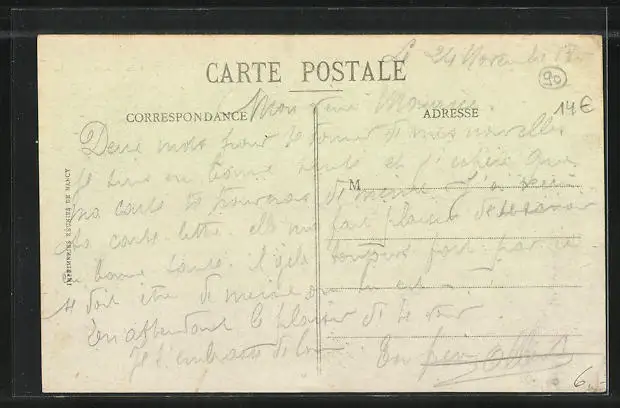 Le 24 Novembre
90
CARTE POSTALE
14 €
CORRESPONDANCE
ADRESSE
Mon
Deux mots pour te donner de mes nouvelles
Je suis en bonne santé et j'espère que
ma carte te trouveras de même J'ai
M
ta carte lettre elle me fait plaisir de te savoir
en bonne santé il gèle toujours fort par ici
doit être de même ou tu es
En attendant le plaisir de te voir
Je t'embrasse de
Ton
IMPRIMERIES RÉUNIES DE NANCY
6